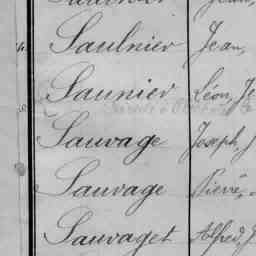 Saulnier Jean,
Saunier Léon, Je
Sauvage Joseph, J
Sauvage Pierre,
Sauvaget Alfred, J